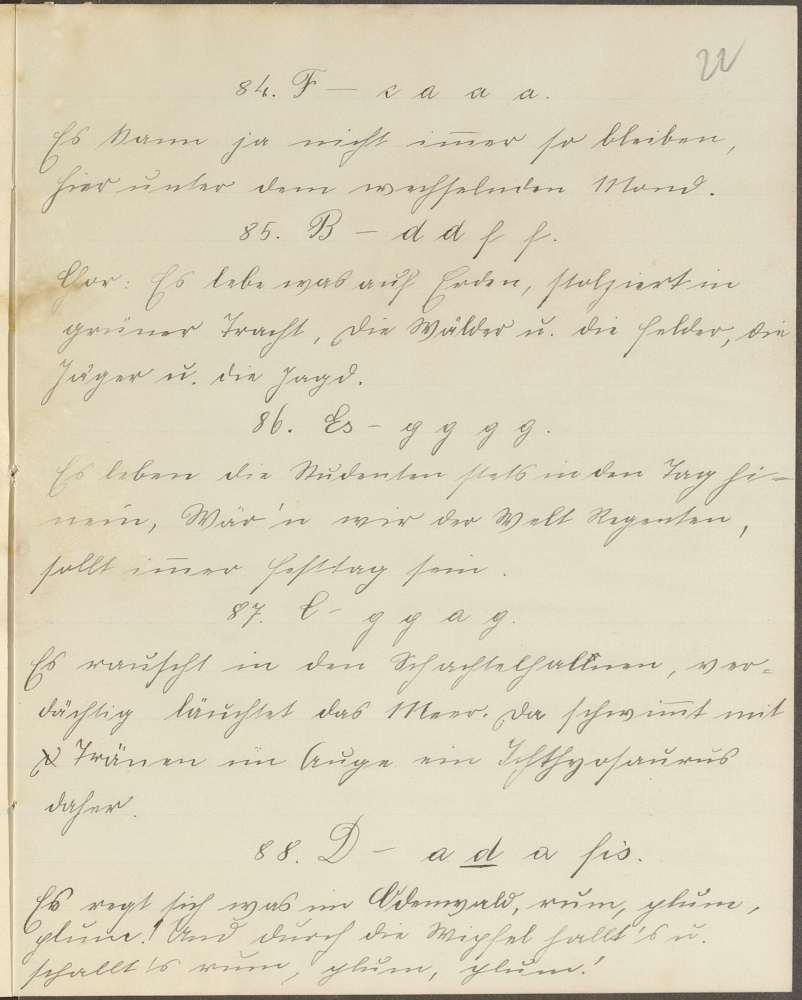 22
84. F — c a a a.
Es kann ja nicht im̄er so bleiben,
hier unter dem wechselnden Mond.
85. B — d d f f.
Chor: Es lebe was auf Erden, stolziert in
grüner Tracht, die Wälder u. die Felder, die
Jäger u. die Jagd.
86. Es — g g g g.
Es leben die Studenten stets in den Tag hi-
nein, Wär'n wir der Welt Regenten,
sollt im̄er Festtag sein.
87. C — g g a g.
Es rauscht in den Schachtelhalmen, ver-
dächtig läuchtet das Meer. Da schwim̄t mit
Tränen im Auge ein Ichthyosaurus
daher.
88. D — a d a fis.
Es regt sich was im Odenwald, rum, plum,
plum! Und durch die Wipfel hallt's u.
schallt's rum, plum, plum!